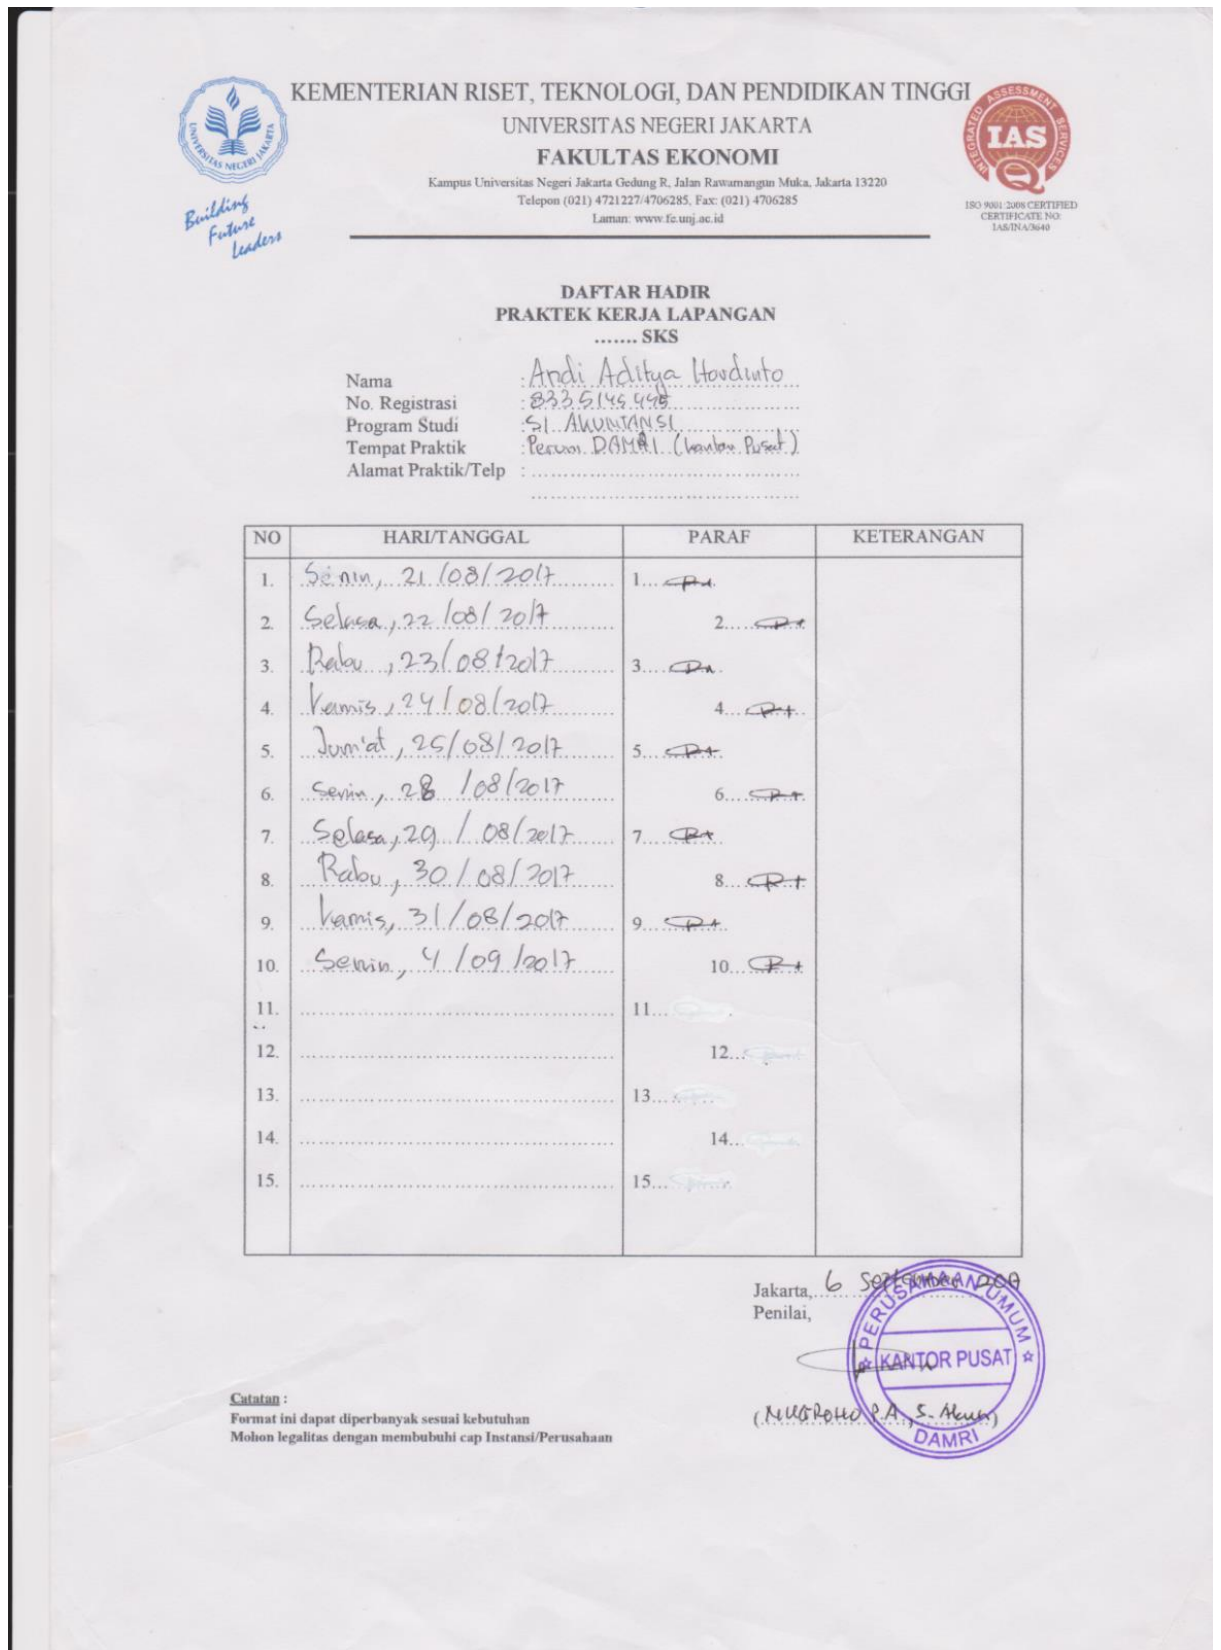 KEMENTERIAN RISET, TEKNOLOGI, DAN PENDIDIKAN TINGGI
UNIVERSITAS NEGERI JAKARTA
FAKULTAS EKONOMI
Kampus Universitas Negeri Jakarta Gedung R, Jalan Rawamangun Muka, Jakarta 13220
Telepon (021) 4721227/4706285, Fax: (021) 4706285
Laman: www.fe.unj.ac.id
UNIVERSITAS NEGERI JAKARTA
Building
Future
Leaders
INTEGRATED ASSESSMENT SERVICES
IAS
ISO 9001:2008 CERTIFIED
CERTIFICATE NO:
IAS/INA/3640
DAFTAR HADIR
PRAKTEK KERJA LAPANGAN
....... SKS
Nama : Andi Aditya
No. Registrasi :
Program Studi : S1 AKUNTANSI
Tempat Praktik : Perum DAMRI (Kantor Pusat)
Alamat Praktik/Telp :
NO HARI/TANGGAL PARAF KETERANGAN
1. Senin, 21/08/2017 1.
2. Selasa, 22/08/2017 2.
3. Rabu, 23/08/2017 3.
4. Kamis, 24/08/2017 4.
5. Jum'at, 25/08/2017 5.
6. Senin, 28/08/2017 6.
7. Selasa, 29/08/2017 7.
8. Rabu, 30/08/2017 8.
9. Kamis, 31/08/2017 9.
10. Senin, 4/09/2017 10.
11. 11.
12. 12.
13. 13.
14. 14.
15. 15.
Jakarta, 6 September 2017
Penilai,
PERUSAHAAN UMUM
KANTOR PUSAT
DAMRI
(NUGROHO P.A.,
Catatan :
Format ini dapat diperbanyak sesuai kebutuhan
Mohon legalitas dengan membubuhi cap Instansi/Perusahaan